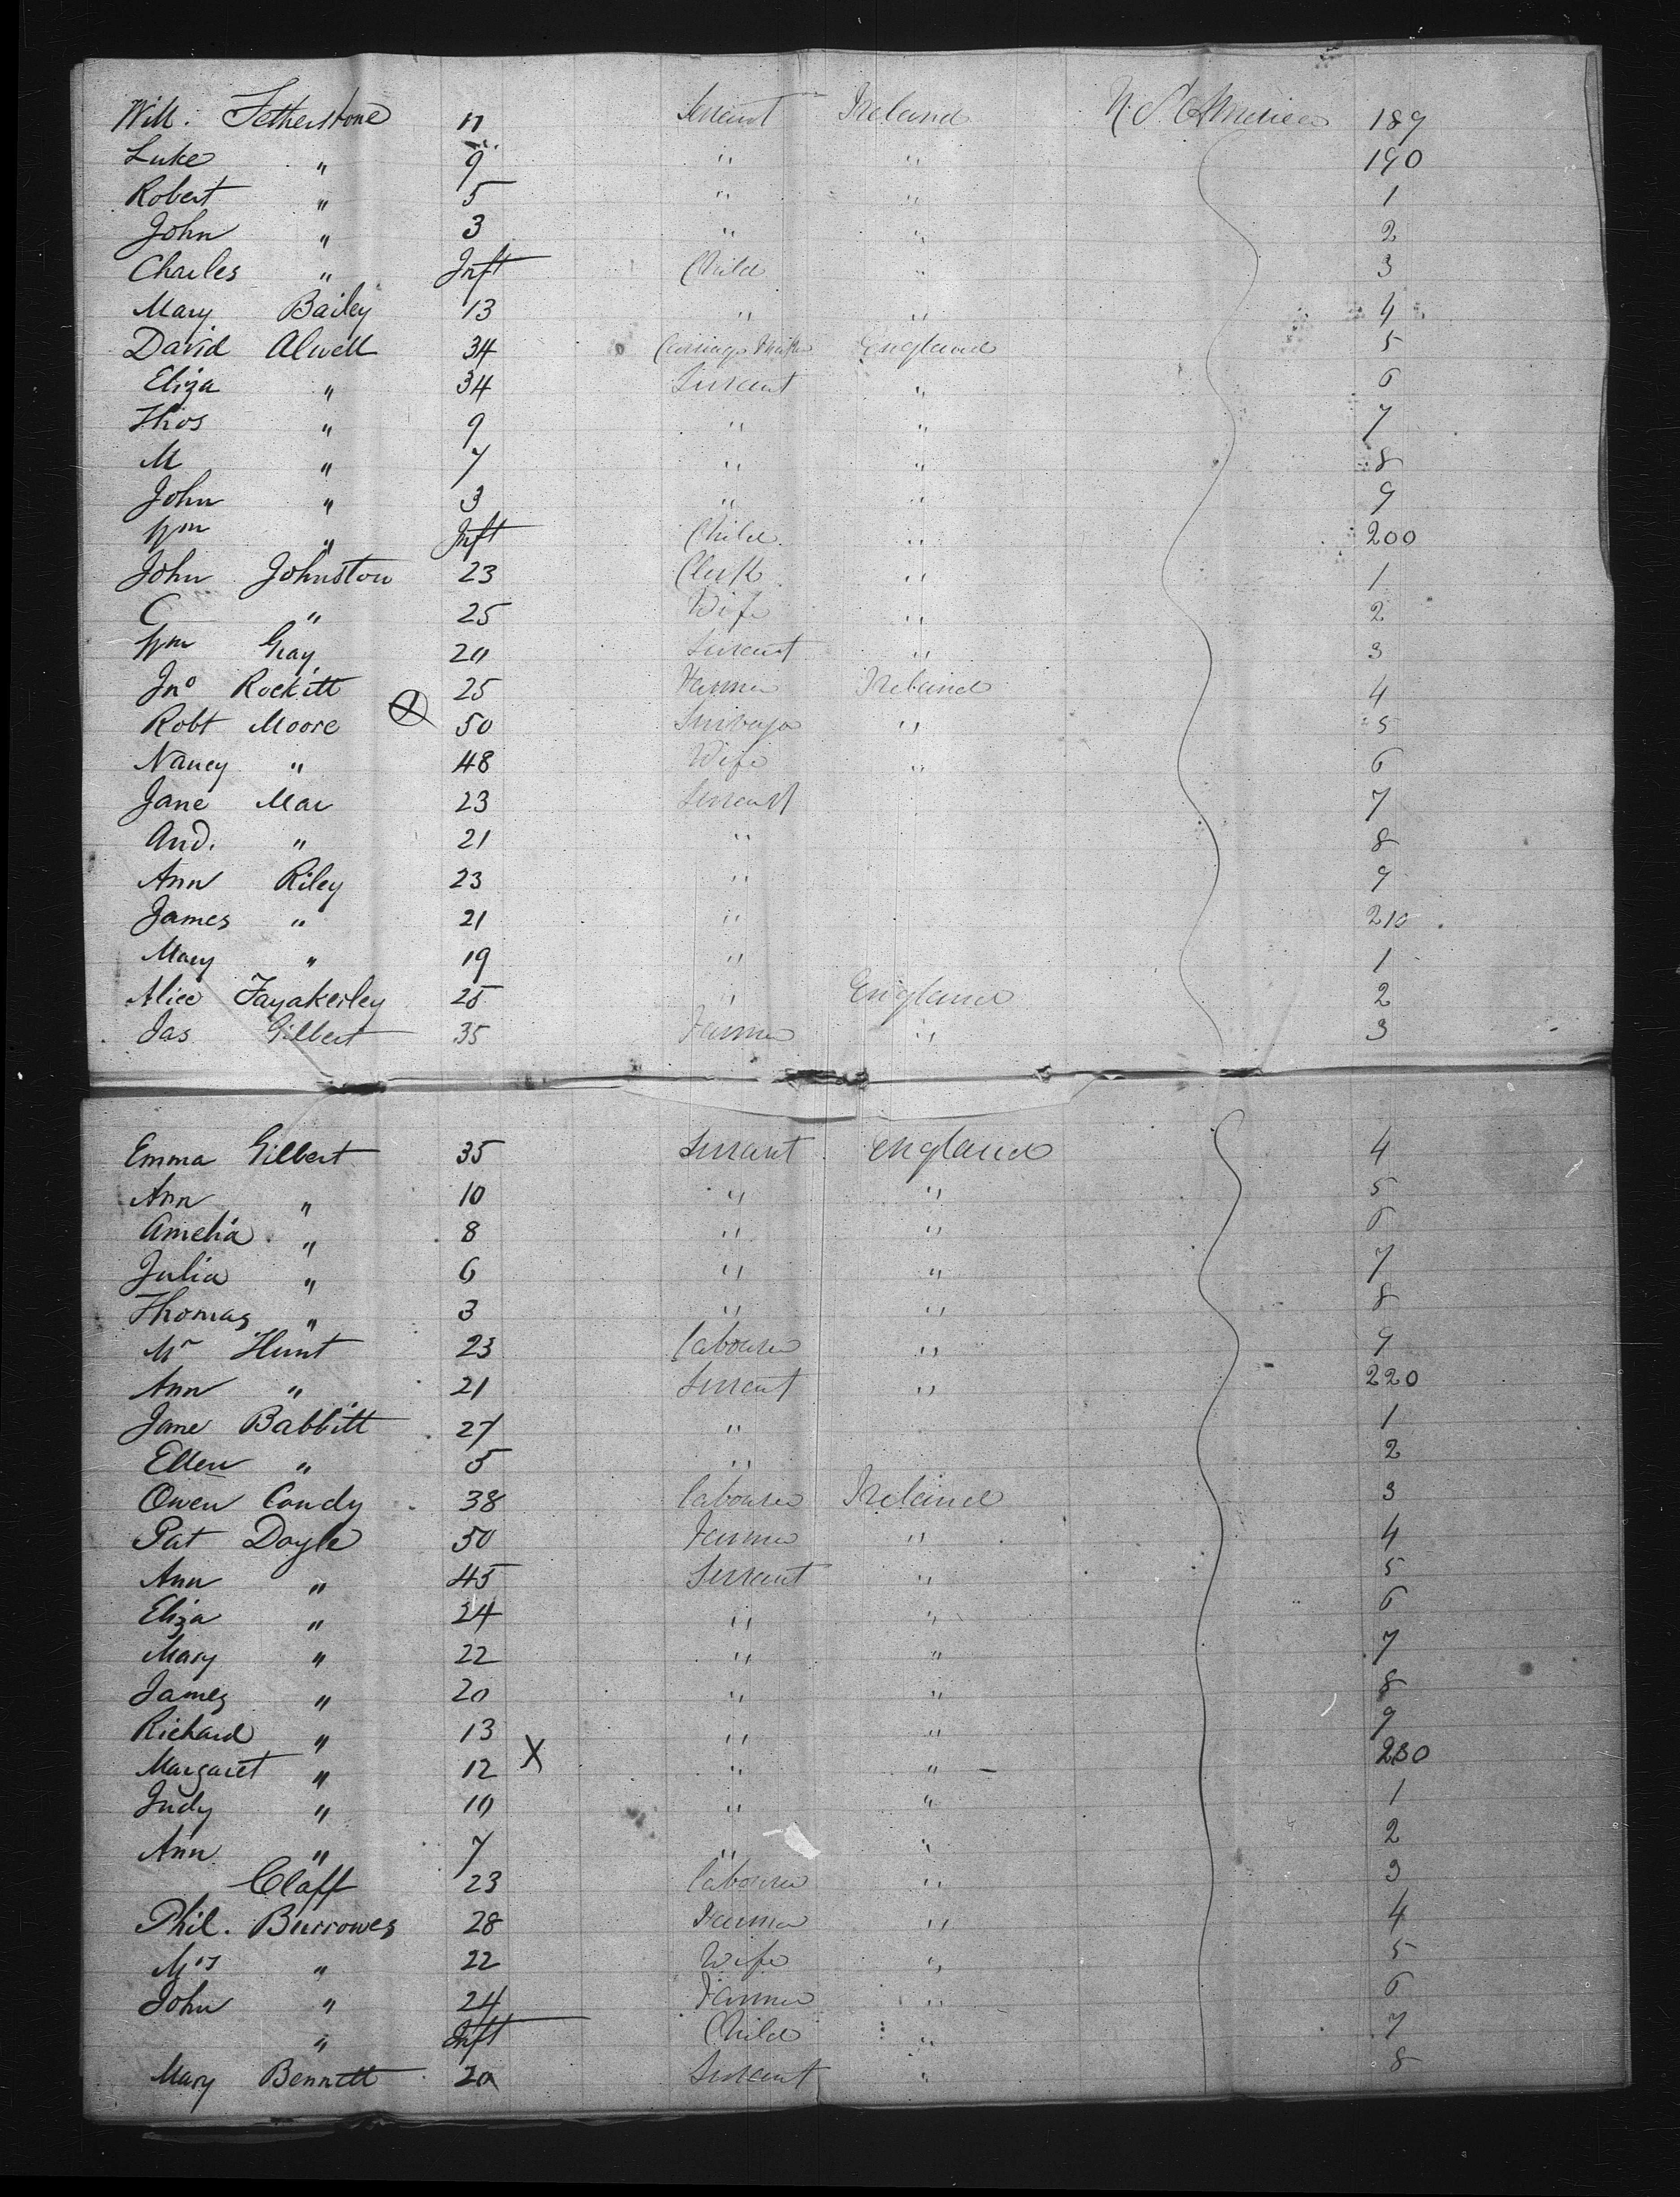 Will. Fetherstone 11 Servant Ireland U. S. America 189
Luke " 9 " " 190
Robert " 5 " " 1
John " 3 " " 2
Charles " Inft Child " 3
Mary Bailey 13 " " 4
David Alwell 34 Carriage Maker England 5
Eliza " 34 Servant " 6
Thos " 9 " " 7
M " 7 " " 8
John " 3 " " 9
Wm " Inft Child " 200
John Johnston 23 Clerk " 1
C " 25 Wife " 2
Wm Gray 20 Servant " 3
Jno Rockitt 25 Farmer Ireland 4
Robt Moore 50 " 5
Nancy " 48 Wife " 6
Jane Mar 23 Servant 7
And. " 21 " 8
Ann Riley 23 " 9
James " 21 " 210
Mary " 19 " 1
Alice Fayakerley 25 " England 2
Jas Gilbert 35 Farmer " 3
Emma Gilbert 35 Servant England 4
Ann " 10 " " 5
Amelia " 8 " " 6
Julia " 6 " " 7
Thomas " 3 " " 8
Mr Hunt 23 Labourer " 9
Ann " 21 Servant " 220
Jane Babbitt 27 " 1
Ellen " 5 " 2
Owen Condy 38 Labourer Ireland 3
Pat Doyle 50 Farmer " 4
Ann " 45 Servant " 5
Eliza " 24 " " 6
Mary " 22 " " 7
James " 20 " " 8
Richard " 13 " " 9
Margaret " 12 X " " 230
Judy " 10 " " 1
Ann " 7 " " 2
Claff 23 Labourer " 3
Phil. Burrowes 28 Farmer " 4
Mrs " 22 Wife " 5
John " 24 Farmer " 6
" Inft Child " 7
Mary Bennett 20 Servant " 8